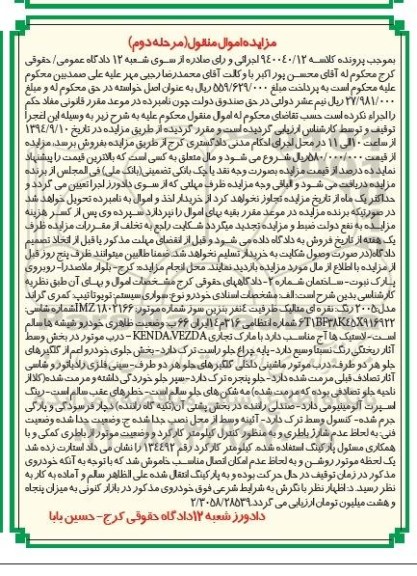 مزایده اموال منقول (مرحله دوم)
بموجب پرونده کلاسه ۹۴۰۰۴۰/۱۲ اجرائی و رای صادره از سوی شعبه ۱۲ دادگاه عمومی/ حقوقی
کرج محکوم له آقای محسن پور اکبر با وکالت آقای محمدرضا رجبی مهر علیه علی صمدبین محکوم
علیه محکوم است به پرداخت مبلغ ۵۵۹/۶۲۹/۰۰۰ ریال به عنوان اصل خواسته در حق محکوم له و مبلغ
۲۷/۹۸۱/۰۰۰ ریال نیم عشر دولتی در حق صندوق دولت چون نامبرده در موعد مقرر قانونی مفاد حکم
را اجراء نکرده است حسب تقاضای محکوم له اموال منقول محکوم علیه به شرح زیر به وسیله این اجرا
توقیف و توسط کارشناس ارزیابی گردیده است و مقرر گردیده از طریق مزایده در تاریخ ۱۳۹۴/۹/۱۰
از ساعت ۱۰ الی ۱۱ در محل اجرای احکام مدنی دادگستری کرج از طریق مزایده بفروش برسد، مزایده
از قیمت ۵۸۰/۰۰۰/۰۰۰ ریال شروع می شود و مال متعلق به کسی است که بالاترین قیمت را پیشنهاد
نماید ده درصد از قیمت مزایده بصورت وجه نقد یا چک بانکی تضمینی (بانک ملی) فی المجلس از برنده
مزایده دریافت می شود و الباقی وجه مزایده ظرف مهلتی که از سوی دادورز اجرا تعیین می گردد و
حداکثر یک ماه از تاریخ مزایده تجاوز نخواهد کرد از خریدار اخذ و اموال به نامبرده تحویل خواهد شد
در صورتیکه برنده مزایده در موعد مقرر بقیه بهای اموال را نپردازد سپرده وی پس از کسر هزینه
مزایده به نفع دولت ضبط و مزایده تجدید میگردد شکایت راجع به تخلف از مقررات مزایده ظرف
یک هفته از تاریخ فروش به دادگاه داده می شود و قبل از انقضای مهلت مذکور یا قبل از اتخاذ تصمیم
دادگاه (در صورت وصول شکایت به خریدار تسلیم نخواهد شد. ضمنا طالبین میتوانند ظرف پنج روز قبل
از مزایده با اطلاع از مال مورد مزایده بازدید نمایند. محل انجام مزایده: کرج- بلوار ملاصدرا- روبروی
پارک نبوت- ساختمان شماره ۲- دادگاههای حقوقی کرج مشخصات اموال و بهای آن طبق نظریه
کارشناسی بدین شرح است: الف: مشخصات اسنادی خودرو نوع: سواری سیستم: تویوتا تیپ: کمری گراند
مدل: ۲۰۰۵ رنگ: نقره ای متالیک ظرفیت: ۴ نفر بنزین سوز شماره موتور: IMZ۱۸۰۲۱۶۶ شماره شاسی:
۶T۱BF۳۸K۴۵X۹۱۶۹۲۲ شماره انتظامی: ۳۱۶ ج ۱۴ ایران ۶۶ ب: وضعیت ظاهری خودرو شیشه ها سالم
است- لاستیک ها آج مناسب دارد با مارک تجاری KENDA.VEZDA – درب موتور در بخش وسط
آثار ریختگی رنگ نسبتا وسیع دارد- پایه چراغ جلو راست ترک دارد- بخش جلوی خودرو اعم از گلگیرهای
جلو هر دو طرف، درب موتور، ماشینی داخلی گلگیر های جلو هر دو طرف- سینی فلزی رادیاتور و شاسی
آثار تصادف قبلی مرمت شده دارد- جلو پنجره ترک دارد- سپر جلو خوردگی داشته و مرمت شده (کلا از
ناحیه جلو تصادفی بوده که مرمت شده) مه شکن های جلو سالم است- خطرهای عقب سالم است- رینگ
اسپرت آلومینیومی دارد- صندلی راننده در بخش پشتی آن (تکیه گاه راننده) دچار فرسودگی و پارگی
چرم شده- کنسول وسط ترک دارد- آئینه وسط از محل نصب جدا شده ج: وضعیت جدا شده وضعیت
فنی: به لحاظ عدم شارژ باطری و به منظور کنترل کیلومتر کارکرد و وضعیت موتور از باطری کمکی و با
همکاری مسئول پارکینگ استفاده شده. کیلومتر کارکرد رقم ۱۳۴۴۹۲ را نشان می داد استارت زده شد
یک لحظه موتور روشن و به لحاظ عدم امکان اتصال مناسب خاموش شد که با توجه به آنکه خودروی
مذکور در زمان توقیف در حال حرکت بوده و به پارکینگ انتقال شده علی الظاهر سالم و آماده به کار به
نظر رسید. د: اظهار نظر با نگرش به شرایط شرعی فوق خودروی مذکور در بازار کنونی به میزان پنجاه
و هشت میلیون تومان ارزیابی می گردد. ۲/۳۰۵۸/۲۸۵۳۹
دادورز شعبه ۱۲ دادگاه حقوقی کرج- حسین بابا